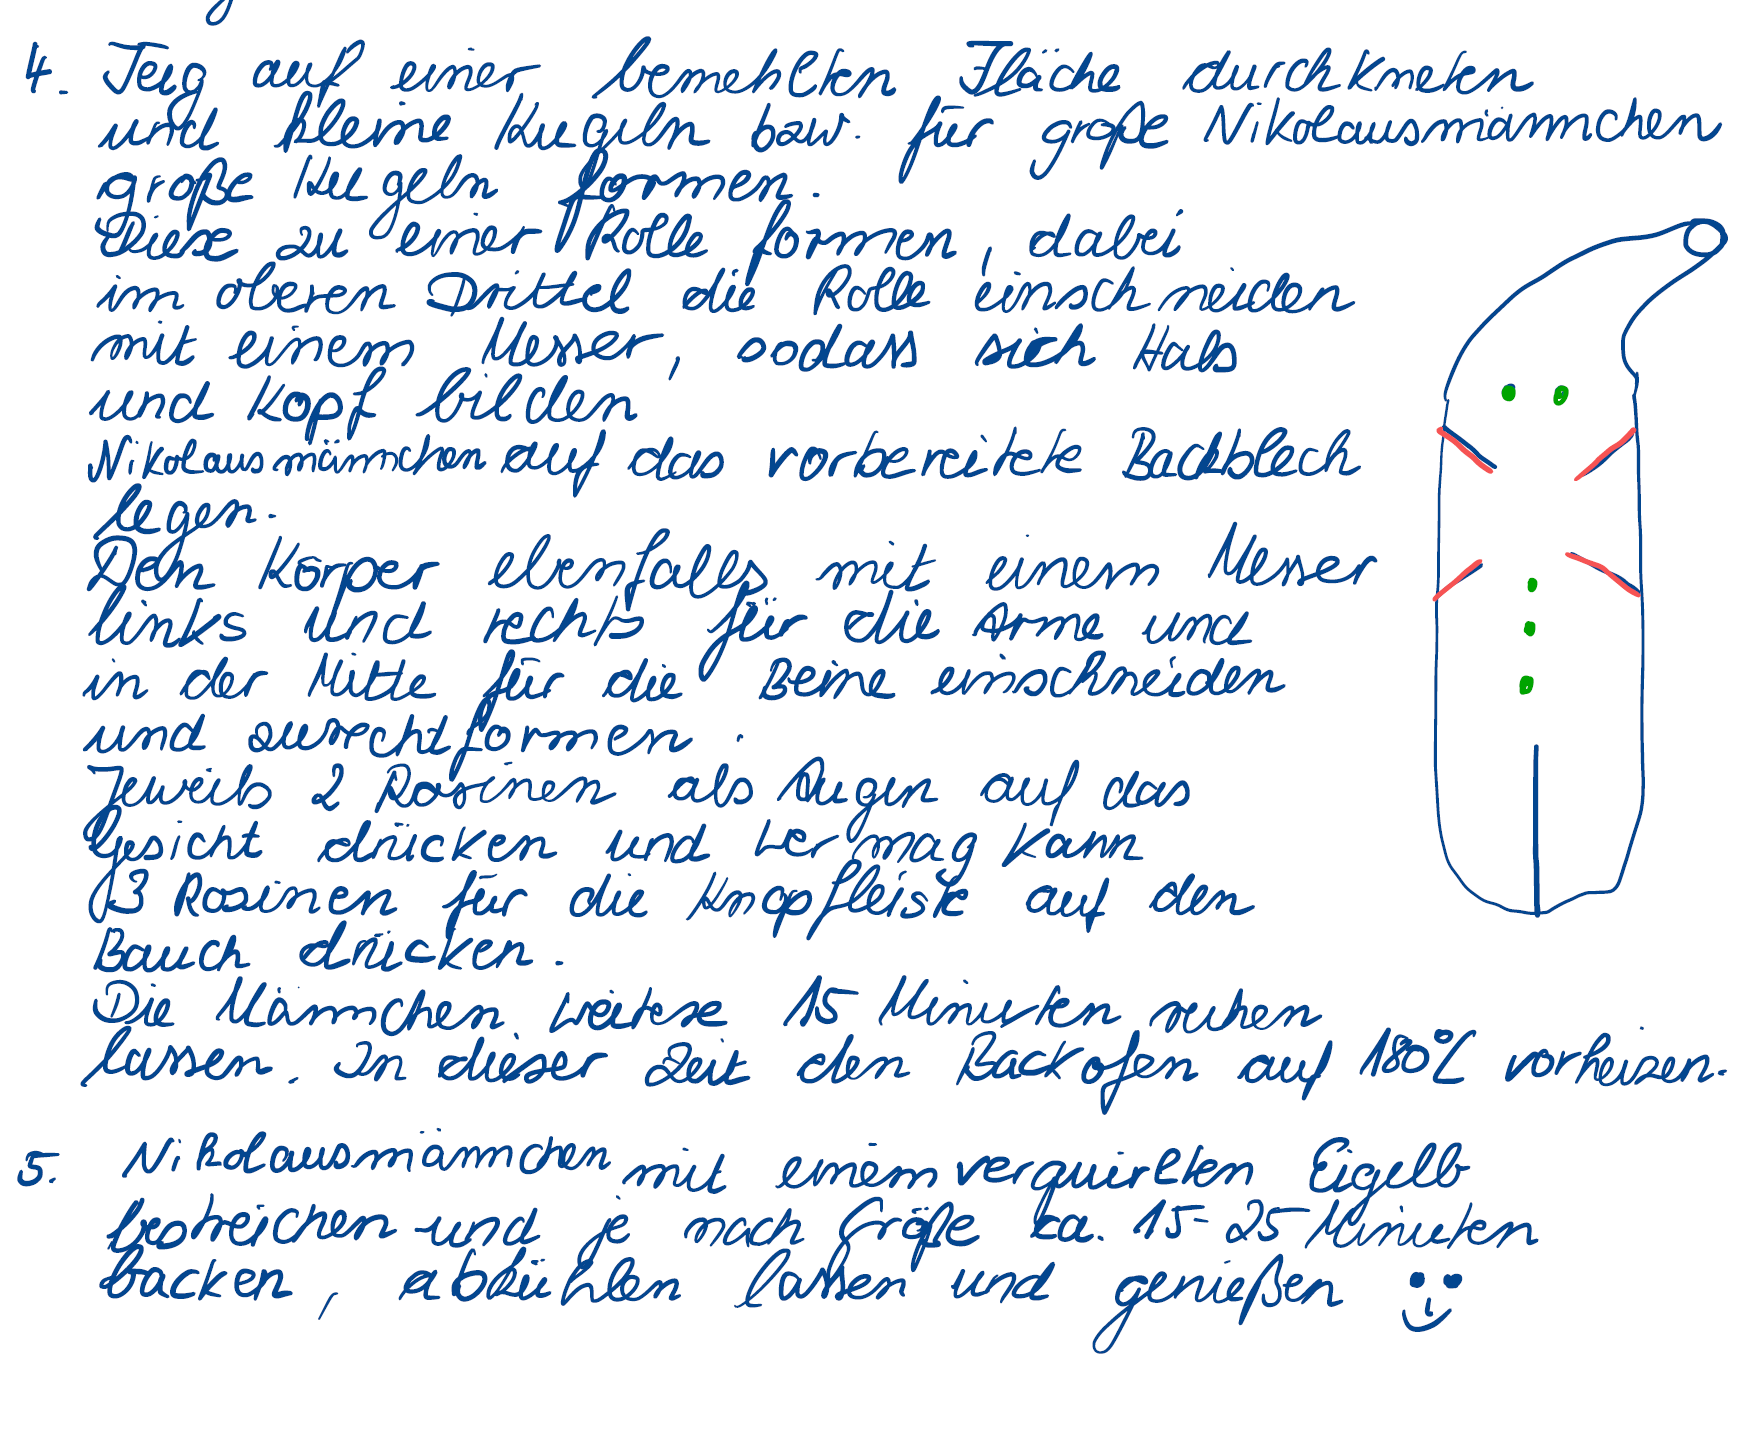 4. Teig auf einer bemehlten Fläche durchkneten
und kleine Kugeln bzw. für große Nikolausmännchen
große Kugeln formen.
Diese zu einer Rolle formen, dabei
im oberen Drittel die Rolle einschneiden
mit einem Messer, sodass sich Hals
und Kopf bilden
Nikolausmännchen auf das vorbereitete Backblech
legen.
Den Körper ebenfalls mit einem Messer
links und rechts für die Arme und
in der Mitte für die Beine einschneiden
und zurechtformen.
Jeweils 2 Rosinen als Augen auf das
Gesicht drücken und wer mag kann
3 Rosinen für die Knopfleiste auf den
Bauch drücken.
Die Männchen weitere 15 Minuten ruhen
lassen. In dieser Zeit den Backofen auf 180°C vorheizen.
5. Nikolausmännchen mit einem verquirlten Eigelb
bestreichen und je nach Größe ca. 15-25 Minuten
backen, abkühlen lassen und genießen